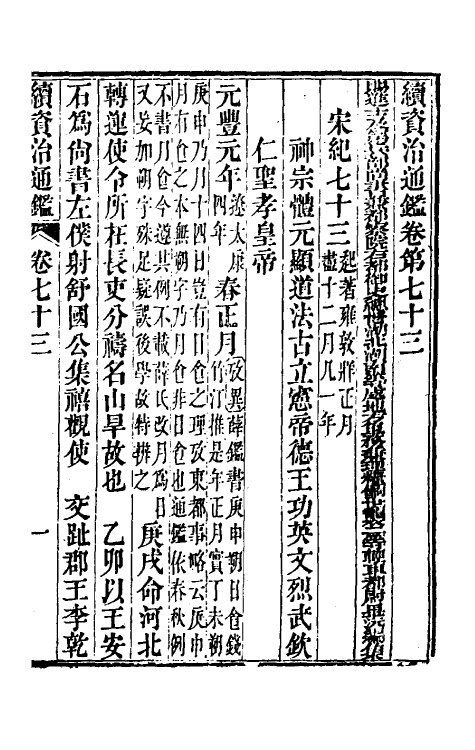 續資治通鑑卷第七十三
宋紀七十三 起著雍敦牂正月
盡十二月凡一年
神宗體元顯道法古立憲帝德王功英文烈武欽
仁聖孝皇帝
元豐元年 遼太康
四年 春正月 攷異薛鑑書庚申朔日食錢
竹汀推是年正月實丁未朔
庚申乃月十四日豈有日食之理攷東都事略云庚申
月有食之本無朔字乃月食非日食也通鑑依春秋例
不書月食今遵其例不載薛氏改月爲日
又妄加朔字殊足疑誤後學故特辨之 庚戌命河北
轉運使令所在長吏分禱名山旱故也 乙卯以王安
石爲尙書左僕射舒國公集禧觀使 交趾郡王李乾
續資治通鑑 卷七十三 一